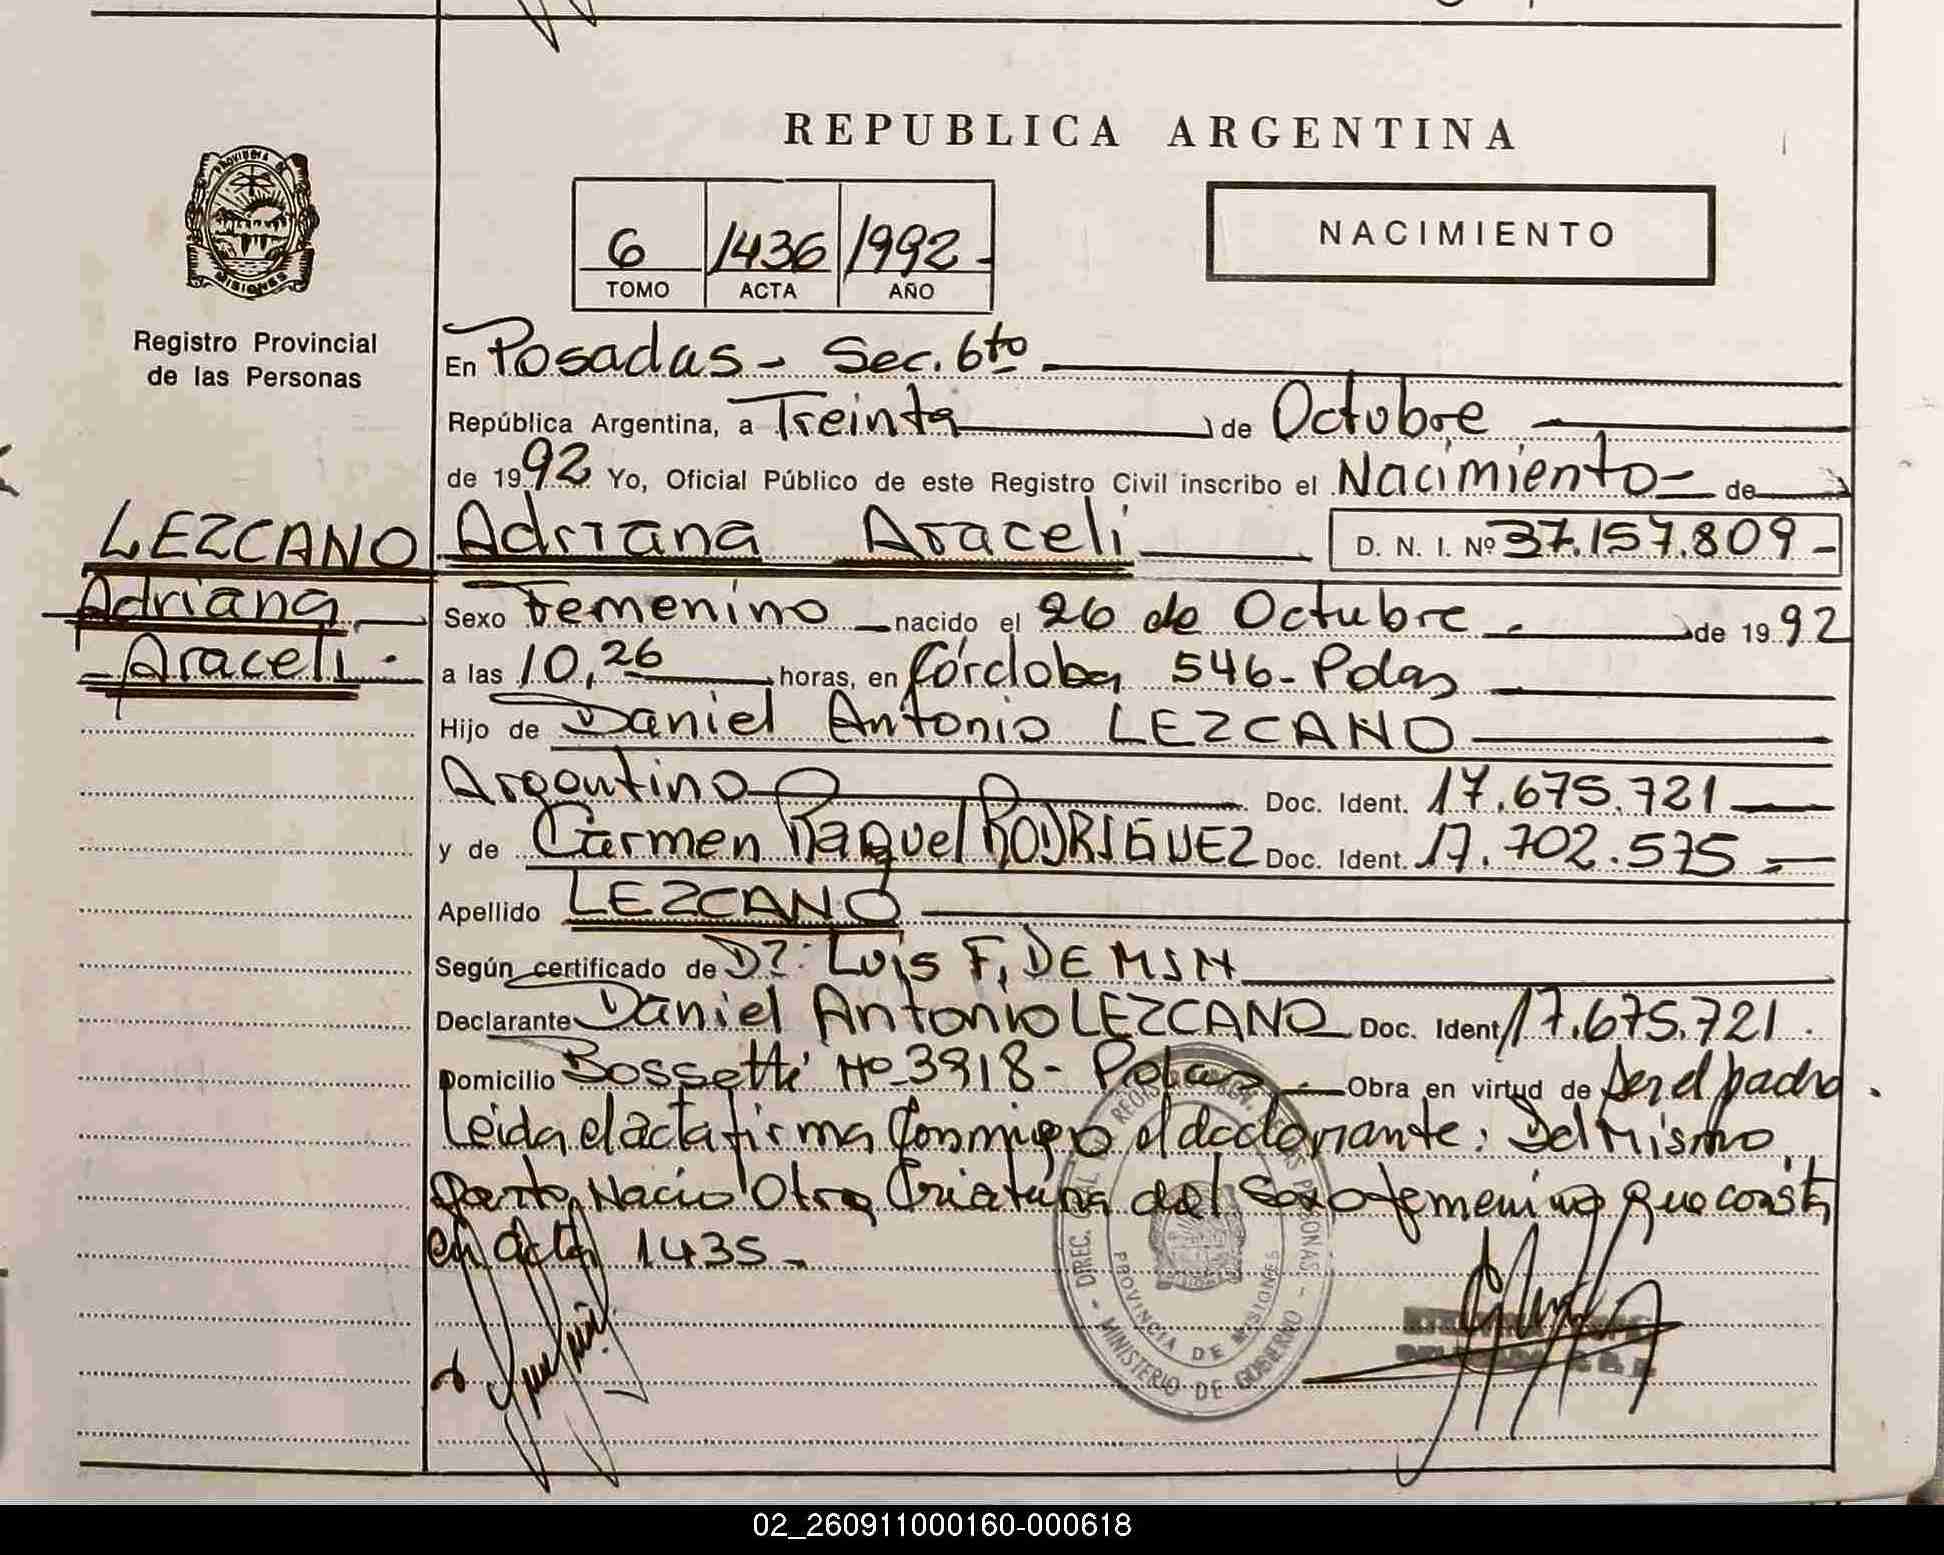 REPUBLICA ARGENTINA
PROVINCIA DE MISIONES
6 1436 1992-
TOMO ACTA AÑO
NACIMIENTO
Registro Provincial
de las Personas
En Posadas - Sec. 6to
República Argentina, a Treinta de Octubre
de 1992 Yo, Oficial Público de este Registro Civil inscribo el Nacimiento- de
LEZCANO
Adriana
Araceli.
Adriana Araceli D. N. I. Nº 37.157.809-
Sexo Femenino nacido el 26 de Octubre de 1992
a las 10,26 horas, en Córdoba 546-Pdas
Hijo de Daniel Antonio LEZCANO
Argentino Doc. Ident. 17.675.721
y de Carmen Raquel RODRIGUEZ Doc. Ident. 17.702.575
Apellido LEZCANO
Según certificado de Dr. Luis F,
Declarante Daniel Antonio LEZCANO Doc. Ident 17.675.721.
Domicilio Bossetti Nº 3918- Pdas Obra en virtud de Ser el padre.
Leida el acta firma Conmigo el declarante: Del Mismo
parto Nacio Otra Criatura del Sexo femenino que consta
en acta 1435-
DIREC. GRAL. REGIST. PERSONAS - MINISTERIO DE GOBIERNO
PROVINCIA DE MISIONES
02_260911000160-000618